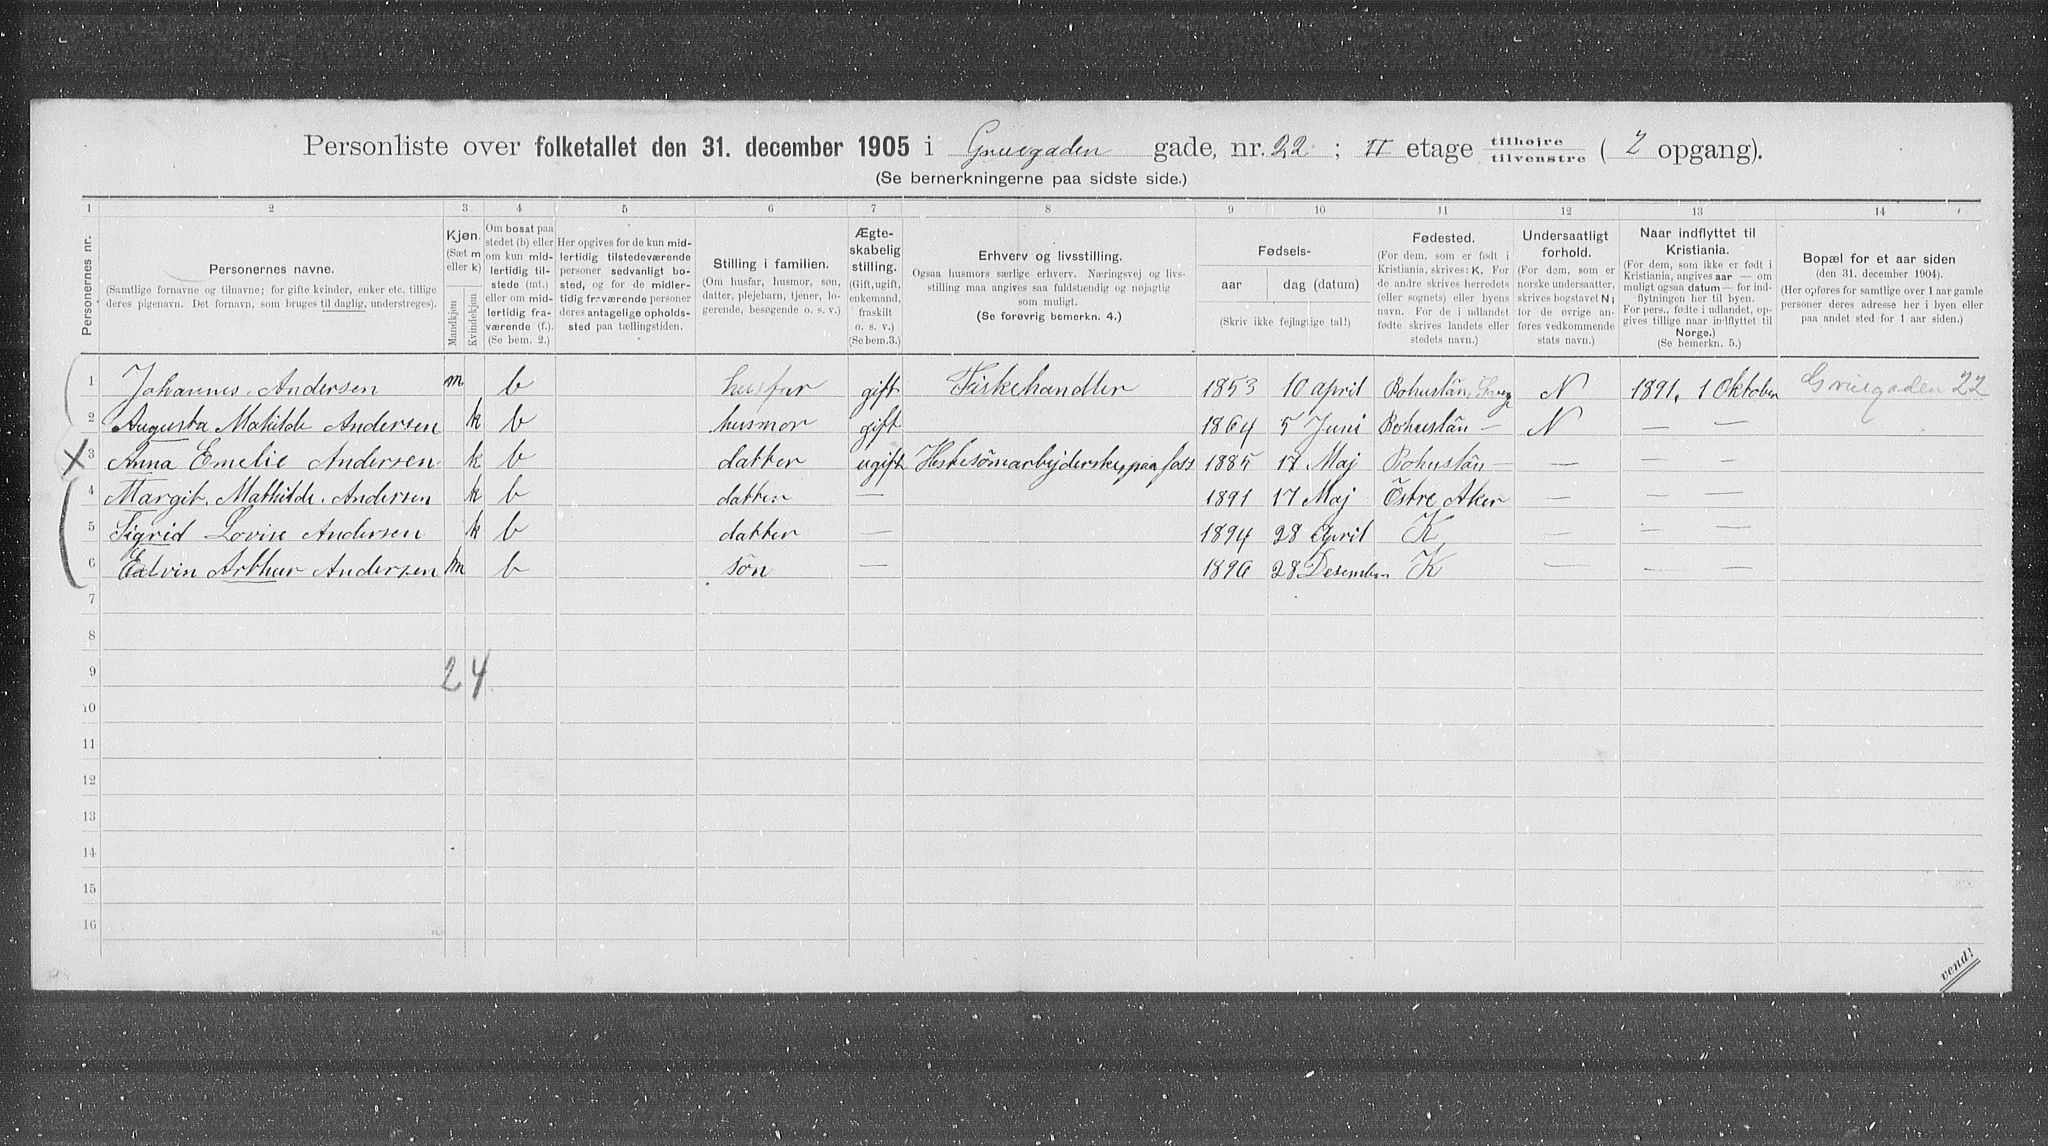 Personliste over folketallet den 31. december 1905 i Gruegaden gade, nr. 22 ; II etage tilhøjre tilvenstre ( 2 opgang).
(Se bemerkningerne paa sidste side.)
1 2 3 4 5 6 7 8 9 10 11 12 13 14
Personernes nr.
Personernes navne.
(Samtlige fornavne og tilnavne; for gifte kvinder, enker etc. tillige deres pigenavn. Det fornavn, som bruges til daglig, understreges).
Kjøn.
(Sæt m eller k)
Mandkjøn
Kvindekjøn
Om bosat paa stedet (b) eller om kun midlertidig tilstede (mt.) eller om midlertidig fraværende (f.).
(Se bem. 2.)
Her opgives for de kun midlertidig tilstedeværende personer sedvanligt bosted, og for de midlertidig fraværende personer deres antagelige opholdssted paa tællingstiden.
Stilling i familien.
(Om husfar, husmor, søn, datter, plejebarn, tjener, logerende, besøgende o. s. v.)
Ægteskabelig stilling.
(Gift, ugift, enkemand, fraskilt o. s. v.)
(Se bem.3.)
Erhverv og livsstilling.
Ogsaa husmors særlige erhverv. Næringsvej og livsstilling maa angives saa fuldstændig og nøjagtig som muligt.
(Se forøvrig bemerkn. 4.)
Fødsels-
aar
dag (datum)
(Skriv ikke fejlagtige tal!)
Fødested.
(For dem, som er født i Kristiania, skrives: K. For de andre skrives herredets (eller sognets) eller byens navn. For de i udlandet fødte skrives landets eller stedets navn.)
Undersaatligt forhold.
(For dem, som er norske undersaatter, skrives bogstavet N; for de øvrige anføres vedkommende stats navn.)
Naar indflyttet til Kristiania.
(For dem, som ikke er født i Kristiania, angives aar — om muligt ogsaa datum — for indflytningen her til byen. For pers., fødte i udlandet, opgives tillige naar indflyttet til Norge.)
(Se bemerkn. 5.)
Bopæl for et aar siden
(den 31. december 1904).
(Her opføres for samtlige over 1 aar gamle personer deres adresse her i byen eller paa andet sted for 1 aar siden.)
1 Johannes Andersen m b husfar gift Fiskehandler 1853 10 april Bohuslän, N 1891, 1 Oktober Gruegaden 22
2 Augusta Mathilde Andersen k b husmor gift 1864 5 Juni Bohuslän — N — —
X 3 Anna Emelie Andersen k b datter ugift Hestesömarbejderske, paa foss 1885 17 Maj Bohuslän — — — —
4 Margit Mathilde Andersen k b datter — 1891 17 Maj Östre Aker — — —
5 Sigrid Lovise Andersen k b datter — 1894 28 April K — — —
6 Edvin Arthur Andersen m b sön — 1896 28 Desember K — — —
7
8
9
24
10
11
12
13
14
15
16
vend!